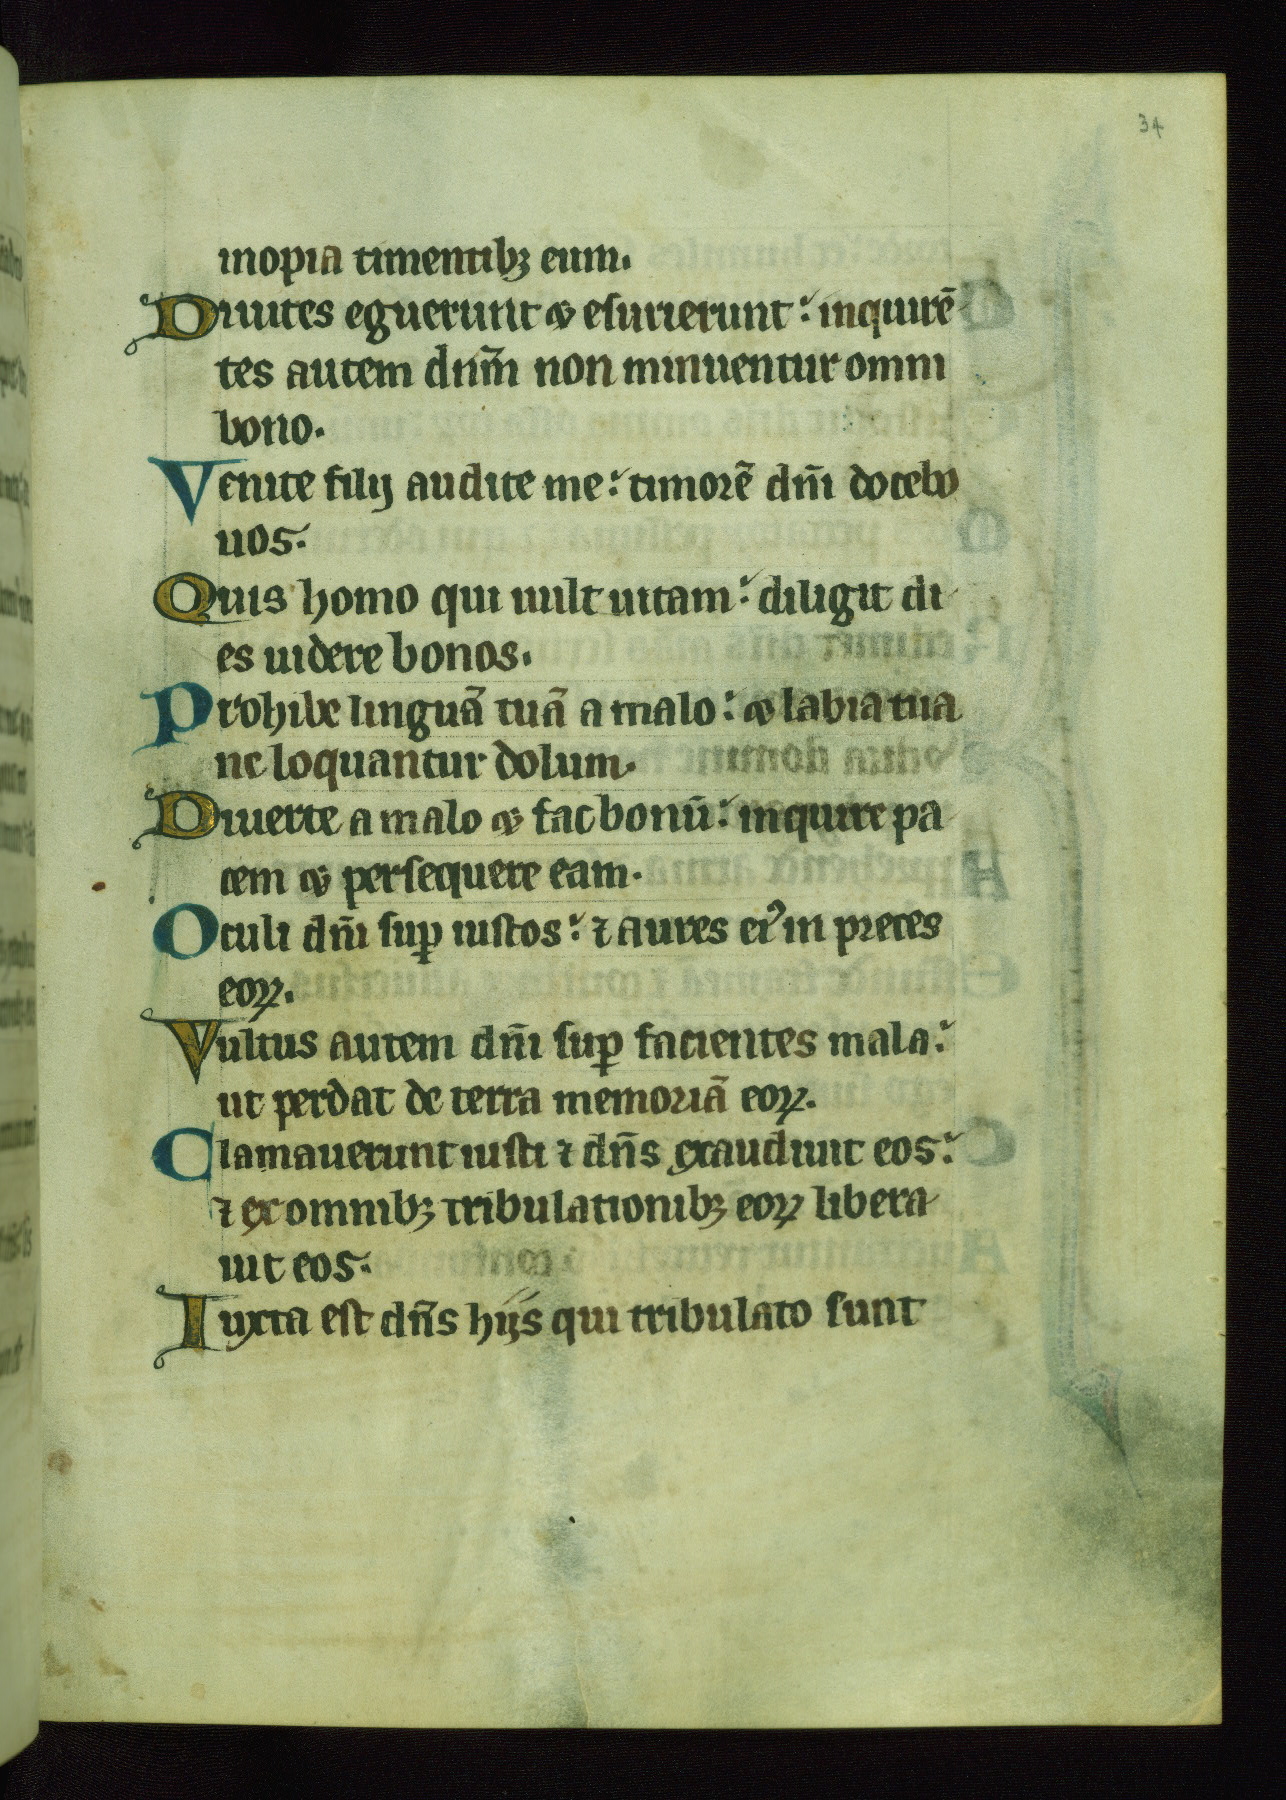 34
inopia timentibꝫ eum.
Diuites eguerunt ⁊ eſurierunt: inquirē
tes autem dnm̄ non minuentur omni
bono.
Venite filij audite me: timorē dnī docebo
uos.
Quis homo qui uult uitam: diligit di
es uidere bonos.
Prohibe linguā tuā a malo: ⁊ labia tua
ne loquantur dolum.
Diuerte a malo ⁊ fac bonū: inquire pa
cem ⁊ perſequere eam.
Oculi dnī ſuꝑ iuſtos: ⁊ aures eiꝰ in preces
eoꝝ.
Vultus autem dnī ſuꝑ facientes mala:
ut perdat de terra memoriā eoꝝ.
Clamauerunt iuſti ⁊ dn̄s exaudiuit eos:
⁊ ex omnibꝫ tribulationibꝫ eoꝝ libera
uit eos.
Iuxta eſt dn̄s hijs qui tribulato ſunt